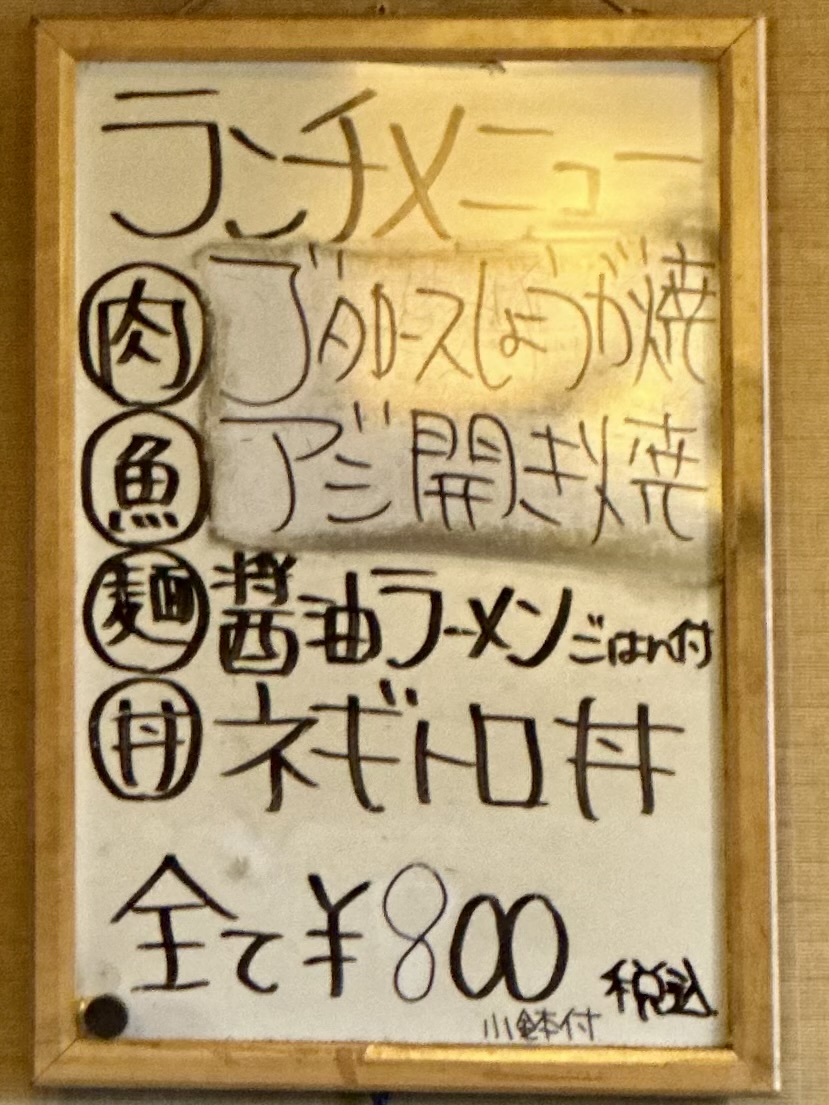 ランチメニュー
肉 ブタロースしょうが焼
魚 アジ開き焼
麺 醤油ラーメンごはん付
丼 ネギトロ丼
全て¥800 税込
小鉢付